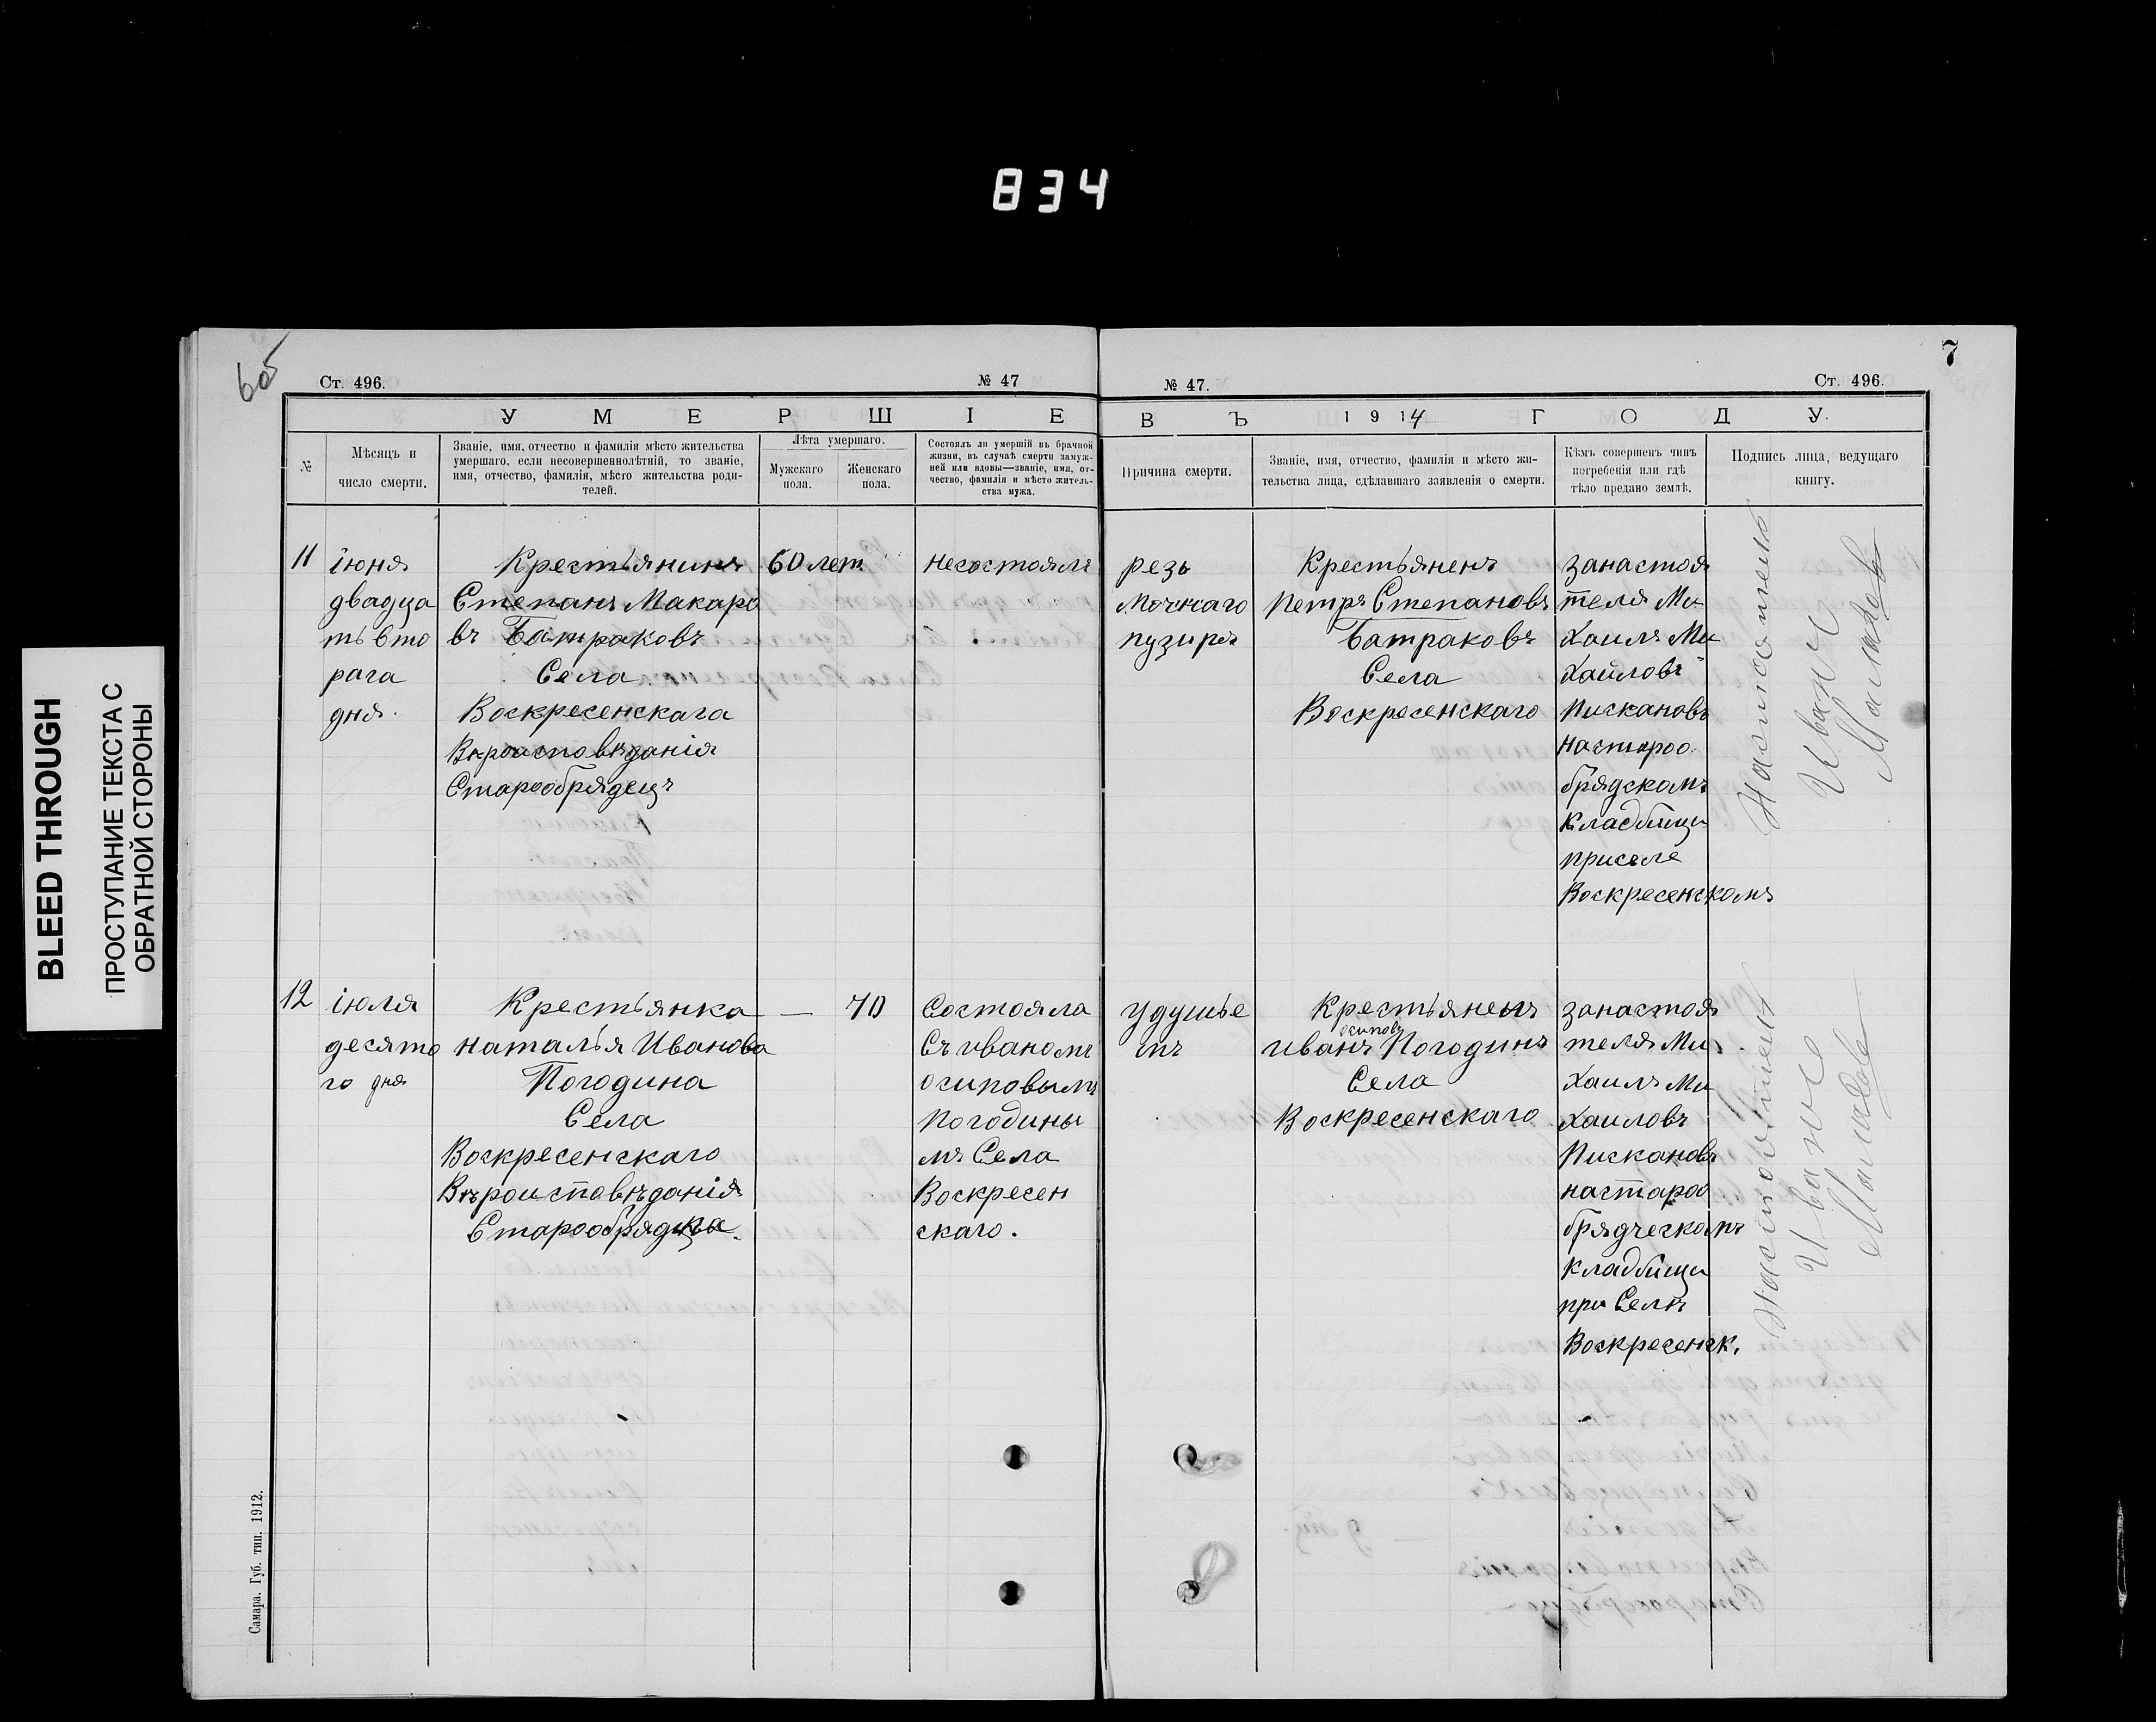 834
BLEED THROUGH
ПРОСТУПАНИЕ ТЕКСТА С
ОБРАТНОЙ СТОРОНЫ
605
7
Ст. 496.
№ 47
№ 47.
Ст. 496.
УМЕРШІЕ
ВЪ 1914 ГОДУ.
№
Мѣсяцъ и
число смерти.
Званіе, имя, отчество и фамилія мѣсто жительства
умершаго, если несовершеннолѣтній, то званіе,
имя, отчество, фамилія, мѣсто жительства роди-
телей.
Лѣта умершаго.
Мужскаго
пола.
Женскаго
пола.
Состоялъ ли умершій въ брачной
жизни, въ случаѣ смерти замуж-
ней или вдовы—званіе, имя, от-
чество, фамилія и мѣсто житель-
ства мужа.
Причина смерти.
Званіе, имя, отчество, фамилія и мѣсто жи-
тельства лица, сдѣлавшаго заявленія о смерти.
Кѣмъ совершенъ чинъ
погребенія или гдѣ
тѣло предано землѣ.
Подпись лица, ведущаго
книгу.
11
іюня
двадца
тьвто
рага
дня.
Крестьянинъ
Степанъ Макаро
въ Батраковъ
Села
Воскресенскага
Вѣроисповѣданія
Старообрядецъ
60 лет
несостоялъ
резь
мочнаго
пузиря
Крестьяненъ
Петръ Степановъ
Батраковъ
Села
Воскресенскаго
занастоя
теля Ми
хаилъ Ми
хайловъ
Пискановъ
настароо
брядскомъ
кладбищи
приселе
Воскресенскомъ
Настоятель
Иванъ
12
іюля
десято
го дня
Крестьянка
наталья Иванова
Погодина
Села
Воскресенскаго
Вѣроисповѣданія
Старообрядка.
—
70
Состояла
Съ иваномъ
осиповымъ
погодины
мъ Села
Воскресен
скаго.
удушье
мъ
Крестьяненъ
осиповъ
иванъ Погодинъ
Села
Воскресенскаго
занастоя
теля Ми
хаилъ Ми
хаиловъ
Пискановъ
настароо
брядческомъ
кладбищи
при Селѣ
Воскресенск.
Настоятель
Иванъ
Самара. Губ. тип. 1912.